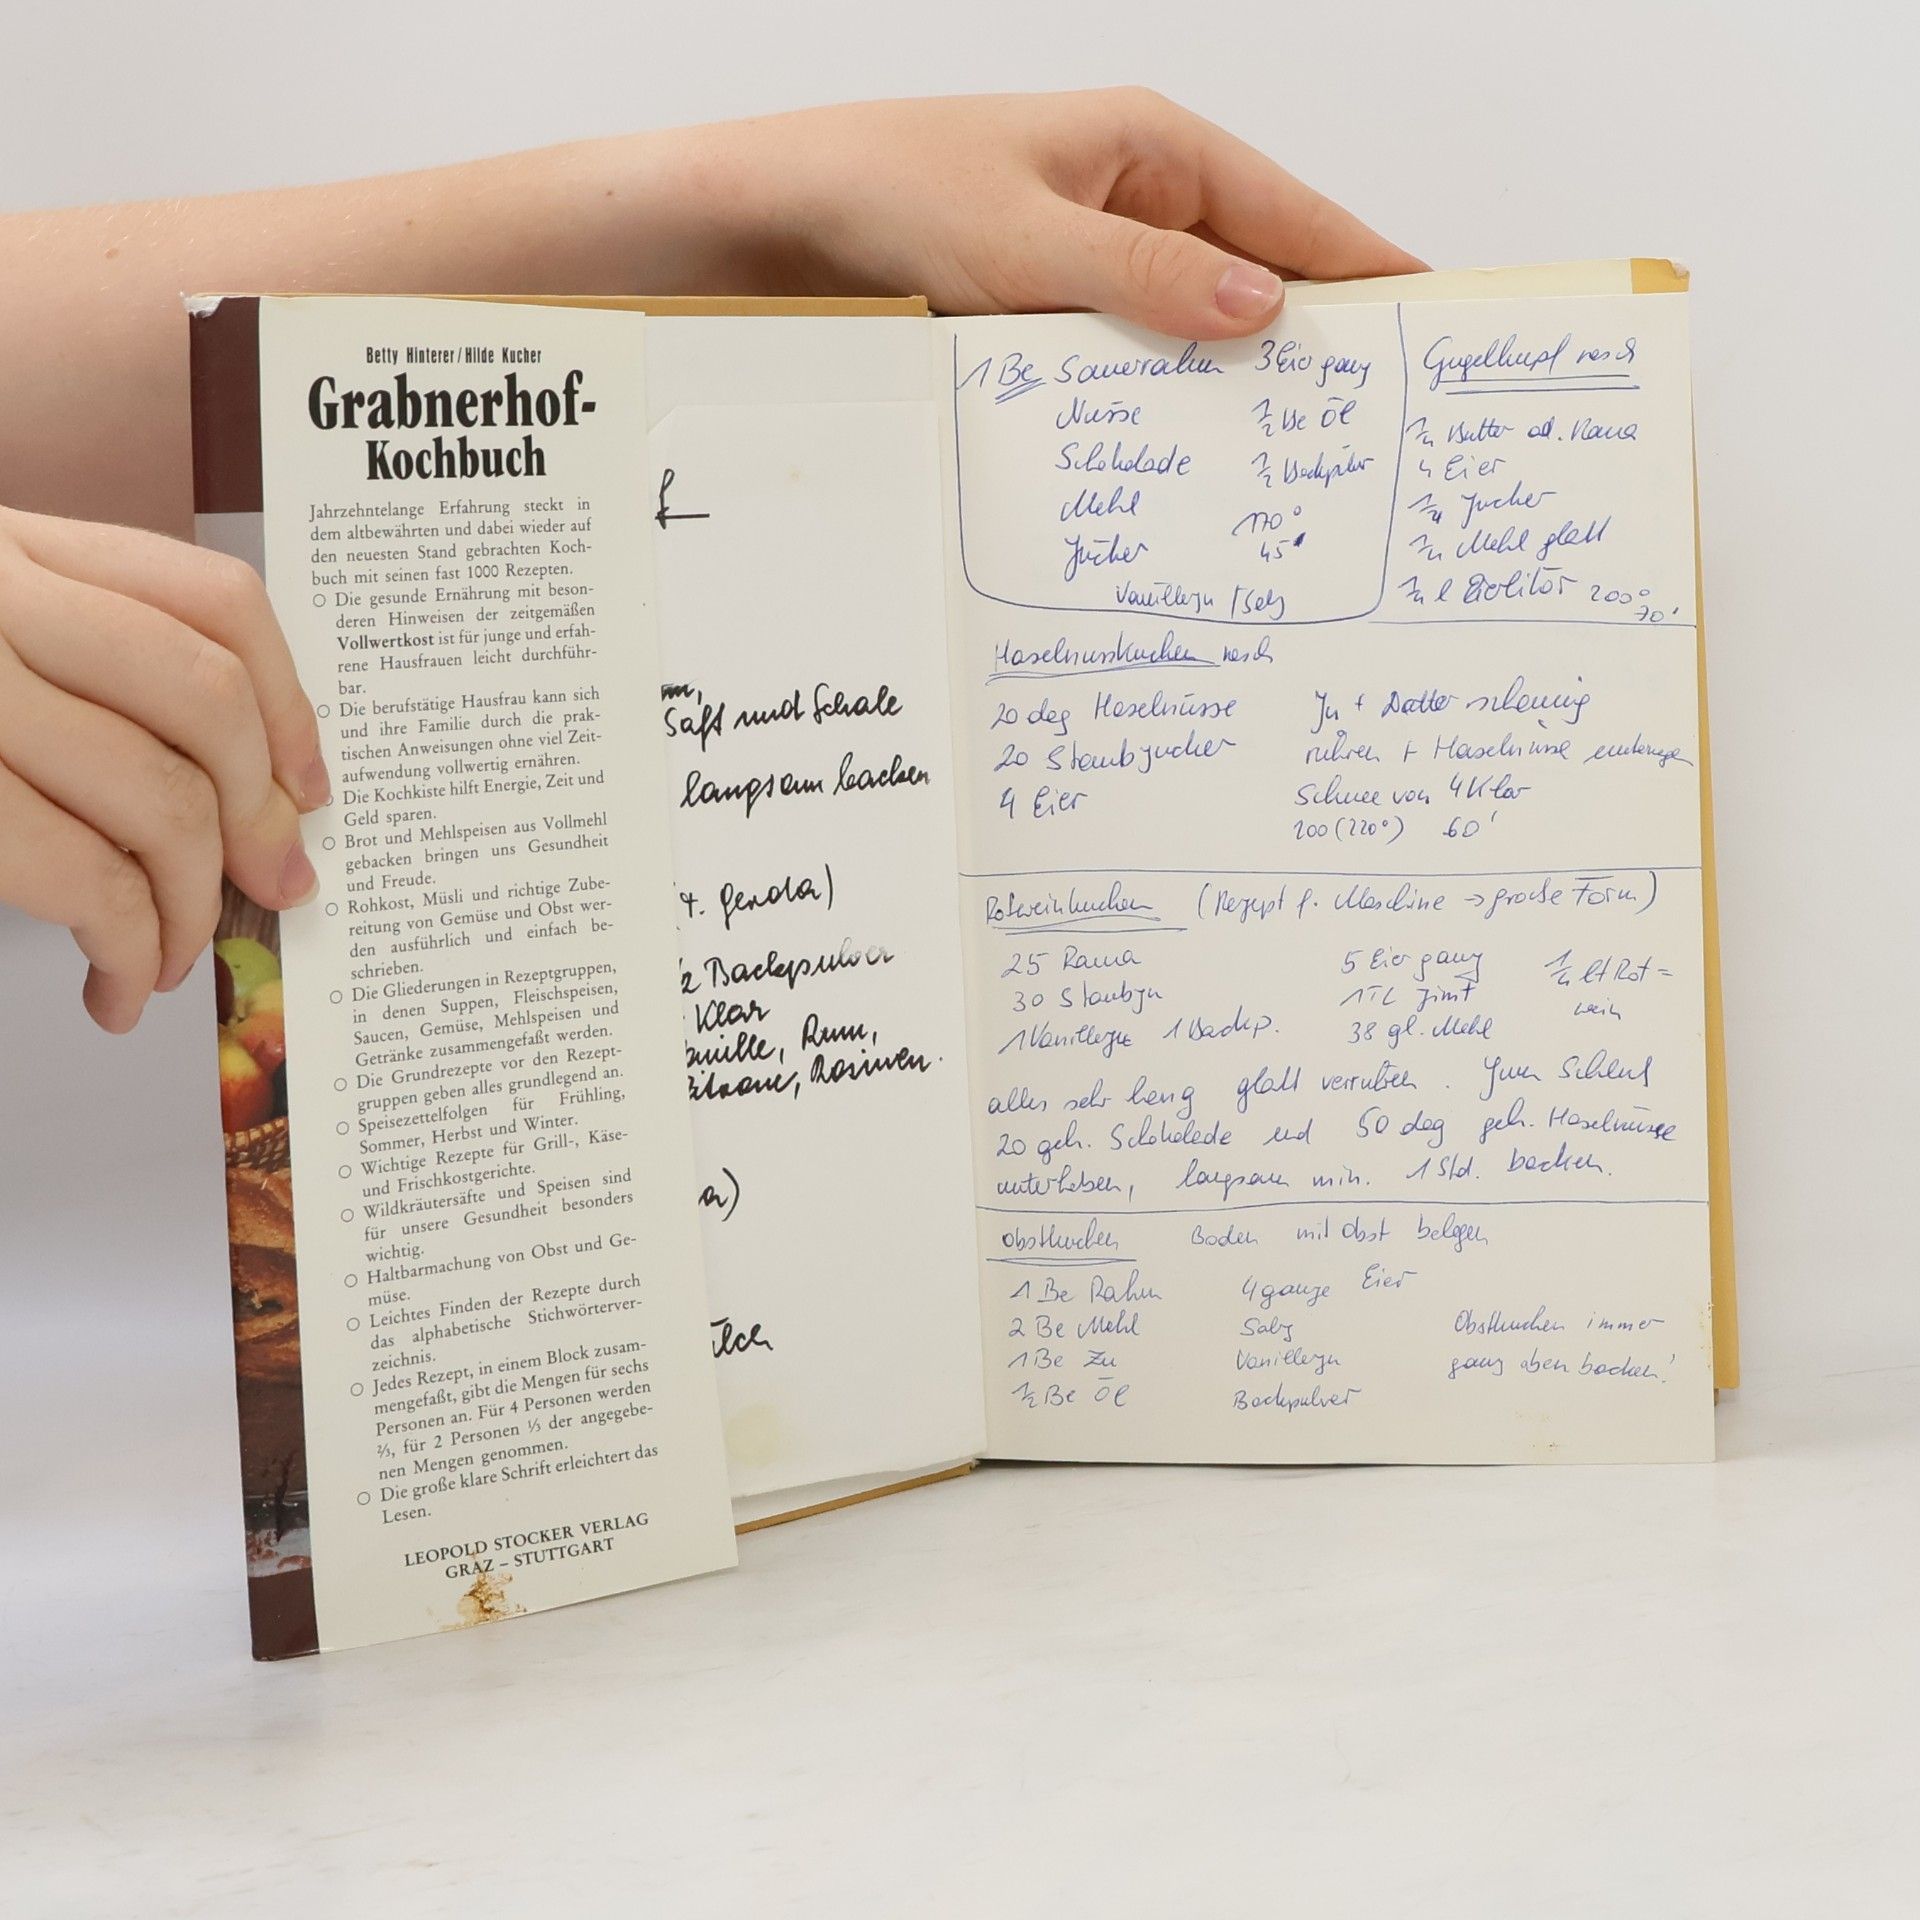 Betty Hinterer/Hilde Kucher
Grabnerhof-
Kochbuch
Jahrzehntelange Erfahrung steckt in
dem altbewährten und dabei wieder auf
den neuesten Stand gebrachten Koch-
buch mit seinen fast 1000 Rezepten.
○ Die gesunde Ernährung mit beson-
deren Hinweisen der zeitgemäßen
Vollwertkost ist für junge und erfah-
rene Hausfrauen leicht durchführ-
bar.
○ Die berufstätige Hausfrau kann sich
und ihre Familie durch die prak-
tischen Anweisungen ohne viel Zeit-
aufwendung vollwertig ernähren.
○ Die Kochkiste hilft Energie, Zeit und
Geld sparen.
○ Brot und Mehlspeisen aus Vollmehl
gebacken bringen uns Gesundheit
und Freude.
○ Rohkost, Müsli und richtige Zube-
reitung von Gemüse und Obst wer-
den ausführlich und einfach be-
schrieben.
○ Die Gliederungen in Rezeptgruppen,
in denen Suppen, Fleischspeisen,
Saucen, Gemüse, Mehlspeisen und
Getränke zusammengefaßt werden.
○ Die Grundrezepte vor den Rezept-
gruppen geben alles grundlegend an.
○ Speisezettelfolgen für Frühling,
Sommer, Herbst und Winter.
○ Wichtige Rezepte für Grill-, Käse-
und Frischkostgerichte.
○ Wildkräutersäfte und Speisen sind
für unsere Gesundheit besonders
wichtig.
○ Haltbarmachung von Obst und Ge-
müse.
○ Leichtes Finden der Rezepte durch
das alphabetische Stichwörterver-
zeichnis.
○ Jedes Rezept, in einem Block zusam-
mengefaßt, gibt die Mengen für sechs
Personen an. Für 4 Personen werden
⅔, für 2 Personen ⅓ der angegebe-
nen Mengen genommen.
○ Die große klare Schrift erleichtert das
Lesen.
LEOPOLD STOCKER VERLAG
GRAZ – STUTTGART
Saft und Schale
langsam backen
Gerda)
Backpulver
Klar
Rum,
Rosinen.
1 Be Sauerrahm 3 Eier ganz
Nüsse ½ Be Öl
Schokolade ½ Backpulver
Mehl 170°
Zucker 45'
Vanillezu / Salz
Gugelhupf rasch
¼ Butter od. Rama
4 Eier
¼ Zucker
¼ Mehl glatt
¼ l 200°
70'
Haselnusskuchen rasch
20 dag Haselnüsse Zu + Dotter schaumig
20 Staubzucker rühren + Haselnüsse
4 Eier Schnee von 4 Klar
200 (220°) 60'
Rotweinkuchen (Rezept f. Maschine → große Form)
25 Rama 5 Eier ganz ¼ lt Rot=
30 Staubzu 1 TL Zimt wein
1 Vanillezu 1 Backp. 38 gl. Mehl
alles sehr lang glatt verrühren. Zum Schluß
20 geh. Schokolade und 50 dag geh. Haselnüsse
unterheben, langsam min. 1 Std. backen.
Obstkuchen Boden mit Obst belegen
1 Be Rahm 4 ganze Eier
2 Be Mehl Salz Obstkuchen immer
1 Be Zu Vanillezu ganz oben backen!
½ Be Öl Backpulver